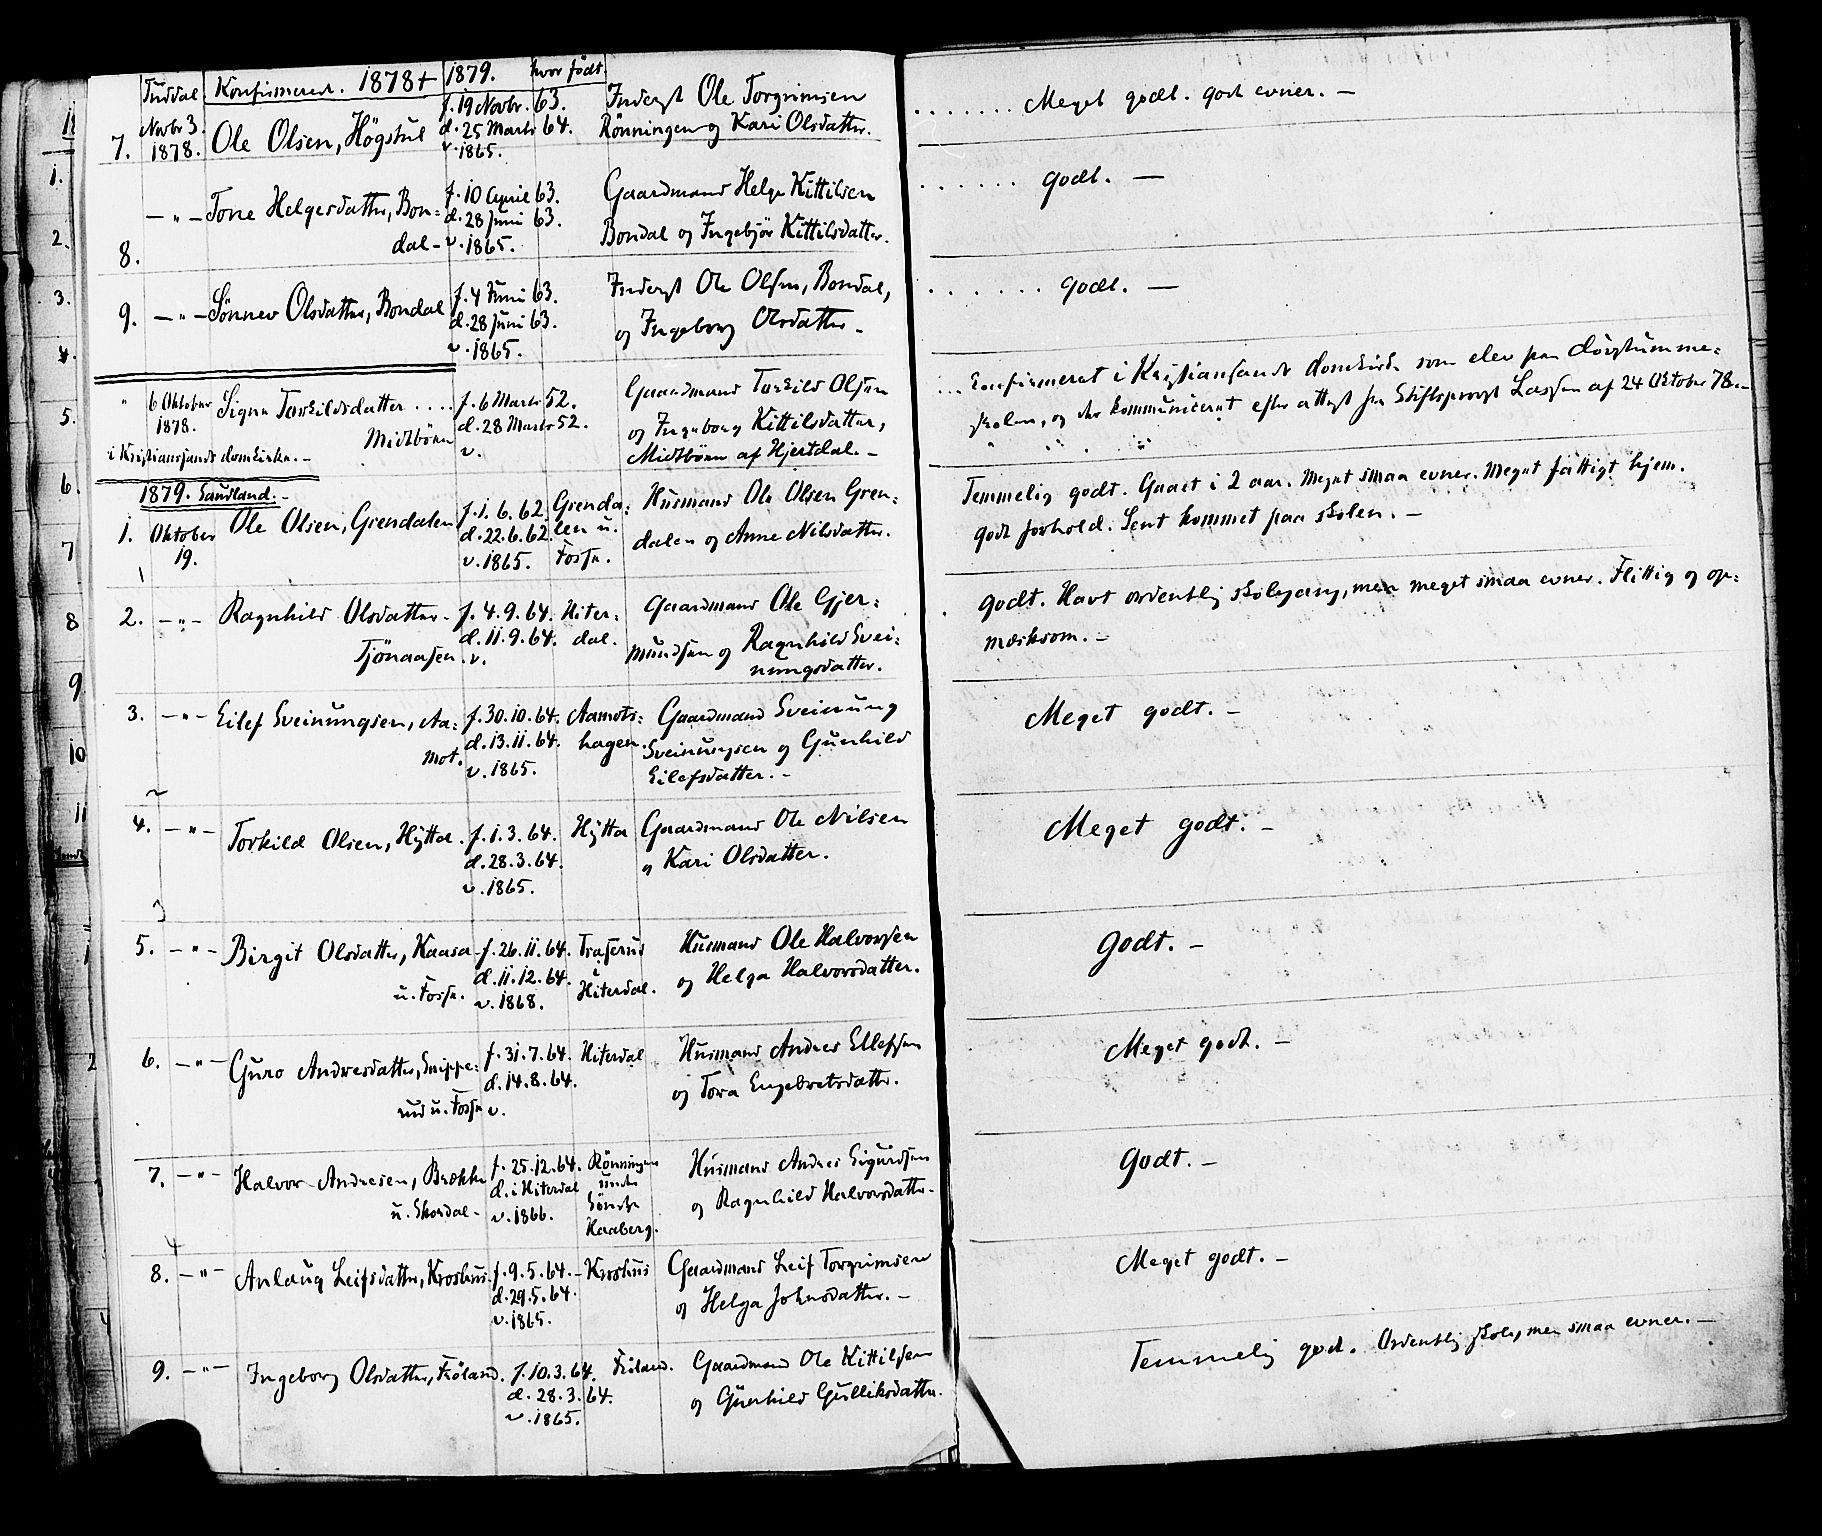 Tuddal Konfirmeret. 1878 + 1879. hvor født.
7. Novbr 3. 1878. Ole Olsen, Högstul f. 19 Novbr. 63. Inderst Ole Torgrimsen . . . . . . . Meget godt. godt evner. —
d. 25 Marts 64. Rønningen og Kari Olsdatter.
v. 1865.
8. — " — Tone Helgesdatter, Bon= f. 10 April 63. Gaardmand Helge Kittilsen . . . . . . godt. —
dal — d. 28 Juni 63. Bondal og Ingebjør Kittilsdatter.
v. 1865.
9. — " — Sønnev Olsdatter, Bondal f. 4 Juni 63. Inderst Ole Olsen, Bondal, . . . . . . godt. —
d. 28 Juni 63. og Ingeborg Olsdatter —
v. 1865.
" 6 Oktober 1878. Signe Torkildsdatter . . . . f. 6 Marts 52. Gaardmand Torkild Olsen ... Confirmeret i Kristiansands domkirke som elev paa døvstumme=
Midtbøen d. 28 Marts 52. og Ingeborg Kittilsdatter, skolen, og der kommuniceret efter attest fra Stiftsprovst Lassen af 24 Oktober 78. —
i Kristianssands domkirke. — v. Midtbøen af Hjertdal. —
1879. Sauland. —
1. Oktober 19. Ole Olsen, Grendalen f. 1. 6. 62. Grenda= Husmand Ole Olsen Gren= Temmelig godt. Gaaet i 2 aar. Meget smaa evner. Meget fattigt hjem.
d. 22. 6. 62. len u. dalen og Anne Nilsdatter. godt forhold. Sent kommet paa skolen. —
v. 1865. Fosse.
2. — " — Ragnhild Olsdatter f. 4. 9. 64. Hiter= Gaardmand Ole Gjer= godt. Havt ordentlig skolegang, men meget smaa evner. Flittig og op=
Tjönaasen. d. 11. 9. 64. dal. mundsen og Ragnhild Svei= mærksom. —
v. nungsdatter.
3. — " — Eilef Sveinungsen, Aa= f. 30. 10. 64. Aamots= Gaardmand Sveinung Meget godt. —
mot. d. 13. 11. 64. hagen. Sveinungsen og Gunhild
v. 1865. Eilefsdatter. —
4. — " — Torkild Olsen, Hytta. f. 1. 3. 64. Hytta Gaardmand Ole Nilsen Meget godt. —
d. 28. 3. 64. og Kari Olsdatter.
v. 1865.
5. — " — Birgit Olsdatter, Kaasa f. 26. 11. 64. Traserud Husmand Ole Halvorsen Godt. —
u. Fosse. d. 11. 12. 64. i og Helga Halvorsdatter.
v. 1868. Hiterdal.
6. — " — Guro Andresdatter, Snippe= f. 31. 7. 64. Hiterdal Husmand Andres Ellefsen Meget godt. —
rud u. Fosse d. 14. 8. 64. og Tora Engebretsdatter.
v.
7. — " — Halvor Andresen, Brække f. 25. 12. 64. Rønningen Husmand Andres Sigurdsen Godt. —
u. Skordal — d. i Hiterdal under og Ragnhild Halvorsdatter.
v. 1866. Søndre
Haaberg.
8. — " — Anlaug Leifsdatter, Kroshus f. 9. 5. 64. — Kroshus Gaardmand Leif Torgrimsen Meget godt. —
d. 29. 5. 64. og Helga Johnsdatter. —
v. 1865.
9. — " — Ingeborg Olsdatter, Frøland. f. 10. 3. 64. Frøland. Gaardmand Ole Kittilsen Temmelig godt. Ordentlig skole, men smaa evner. —
d. 28. 3. 64. og Gunhild Gulliksdatter.
v. 1865.